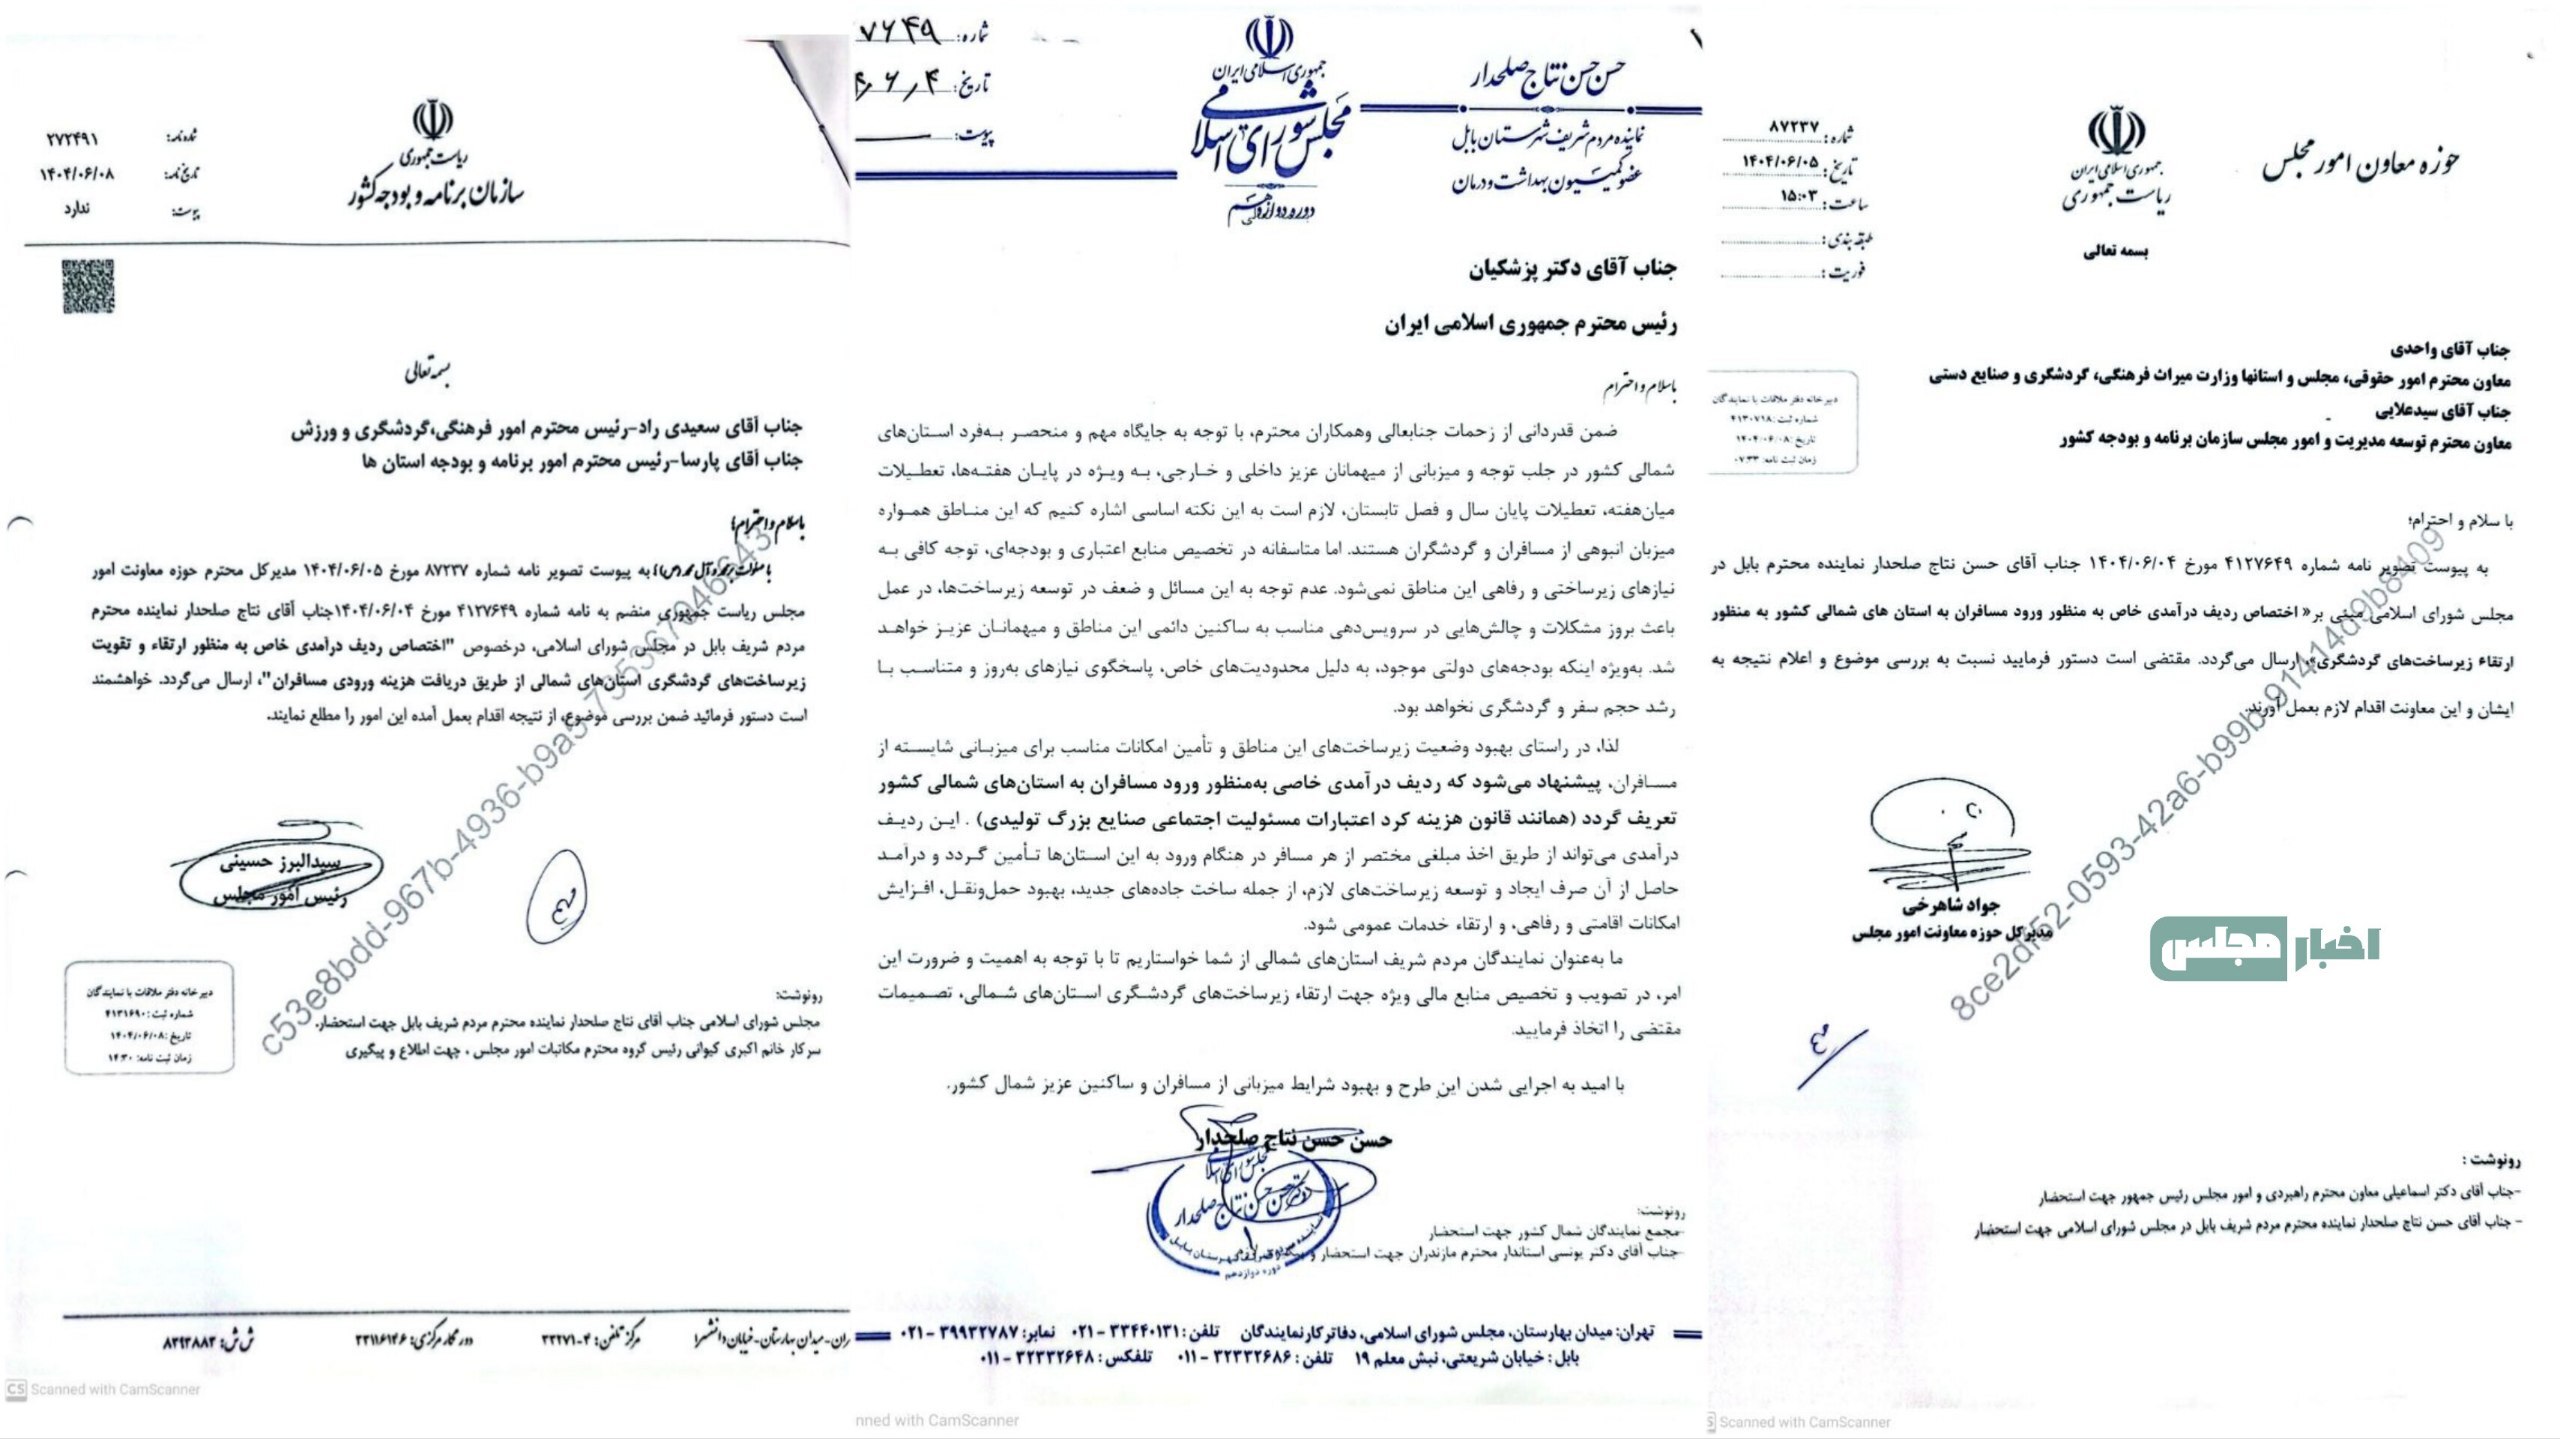 حوزه معاون امور مجلس
جمهوری اسلامی ایران
ریاست جمهوری
بسمه تعالی
شماره: ۸۷۲۳۷
تاریخ: ۱۴۰۴/۰۶/۰۵
ساعت: ۱۵:۰۳
طبقه بندی:
فوریت:
جناب آقای واحدی
معاون محترم امور حقوقی، مجلس و استانها وزارت میراث فرهنگی، گردشگری و صنایع دستی
جناب آقای سیدعلایی
معاون محترم توسعه مدیریت و امور مجلس سازمان برنامه و بودجه کشور
دبیرخانه دفتر ملاقات با نمایندگان
شماره ثبت: ۴۱۳۰۷۱۸
تاریخ: ۱۴۰۴/۰۶/۰۸
زمان ثبت نامه: ۰۷:۳۳
با سلام و احترام؛
به پیوست تصویر نامه شماره ۴۱۲۷۶۴۹ مورخ ۱۴۰۴/۰۶/۰۴ جناب آقای حسن نتاج صلحدار نماینده محترم بابل در
مجلس شورای اسلامی مبنی بر« اختصاص ردیف درآمدی خاص به منظور ورود مسافران به استان های شمالی کشور به منظور
ارتقاء زیرساخت‌های گردشگری»، ارسال می‌گردد. مقتضی است دستور فرمایید نسبت به بررسی موضوع و اعلام نتیجه به
ایشان و این معاونت اقدام لازم بعمل آورند.
جواد شاهرخی
مدیرکل حوزه معاونت امور مجلس
اخبار مجلس
رونوشت :
-جناب آقای دکتر اسماعیلی معاون محترم راهبردی و امور مجلس رئیس جمهور جهت استحضار
- جناب آقای حسن نتاج صلحدار نماینده محترم مردم شریف بابل در مجلس شورای اسلامی جهت استحضار
8ce2df52-0593-42a6-b99b-91414d9b8409
Scanned with CamScanner
حسن حسن نتاج صلحدار
نماینده مردم شریف شهرستان بابل
عضو کمیسیون بهداشت و درمان
جمهوری اسلامی ایران
مجلس شورای اسلامی
دوره دوازدهم
شماره: ۷۶۴۹
تاریخ: ۴/۶/۴
پیوست:
جناب آقای دکتر پزشکیان
رئیس محترم جمهوری اسلامی ایران
باسلام و احترام
ضمن قدردانی از زحمات جنابعالی وهمکاران محترم، با توجه به جایگاه مهم و منحصر به‌فرد استان‌های
شمالی کشور در جلب توجه و میزبانی از میهمانان عزیز داخلی و خارجی، به ویژه در پایان هفته‌ها، تعطیلات
میان‌هفته، تعطیلات پایان سال و فصل تابستان، لازم است به این نکته اساسی اشاره کنیم که این مناطق همواره
میزبان انبوهی از مسافران و گردشگران هستند. اما متاسفانه در تخصیص منابع اعتباری و بودجه‌ای، توجه کافی به
نیازهای زیرساختی و رفاهی این مناطق نمی‌شود. عدم توجه به این مسائل و ضعف در توسعه زیرساخت‌ها، در عمل
باعث بروز مشکلات و چالش‌هایی در سرویس‌دهی مناسب به ساکنین دائمی این مناطق و میهمانان عزیز خواهد
شد. به‌ویژه اینکه بودجه‌های دولتی موجود، به دلیل محدودیت‌های خاص، پاسخگوی نیازهای به‌روز و متناسب با
رشد حجم سفر و گردشگری نخواهد بود.
لذا، در راستای بهبود وضعیت زیرساخت‌های این مناطق و تأمین امکانات مناسب برای میزبانی شایسته از
مسافران، پیشنهاد می‌شود که ردیف درآمدی خاصی به‌منظور ورود مسافران به استان‌های شمالی کشور
تعریف گردد (همانند قانون هزینه کرد اعتبارات مسئولیت اجتماعی صنایع بزرگ تولیدی) . این ردیف
درآمدی می‌تواند از طریق اخذ مبلغی مختصر از هر مسافر در هنگام ورود به این استان‌ها تأمین گردد و درآمد
حاصل از آن صرف ایجاد و توسعه زیرساخت‌های لازم، از جمله ساخت جاده‌های جدید، بهبود حمل‌ونقل، افزایش
امکانات اقامتی و رفاهی، و ارتقاء خدمات عمومی شود.
ما به‌عنوان نمایندگان مردم شریف استان‌های شمالی از شما خواستاریم تا با توجه به اهمیت و ضرورت این
امر، در تصویب و تخصیص منابع مالی ویژه جهت ارتقاء زیرساخت‌های گردشگری استان‌های شمالی، تصمیمات
مقتضی را اتخاذ فرمایید.
با امید به اجرایی شدن این طرح و بهبود شرایط میزبانی از مسافران و ساکنین عزیز شمال کشور.
حسن حسن نتاج صلحدار
رونوشت:
-مجمع نمایندگان شمال کشور جهت استحضار
-جناب آقای دکتر یونسی استاندار محترم مازندران جهت استحضار و
تهران: میدان بهارستان، مجلس شورای اسلامی، دفاتر کار نمایندگان تلفن: ۳۳۴۴۰۱۳۱ - ۰۲۱ نمابر: ۳۹۹۳۲۷۸۷ - ۰۲۱
بابل : خیابان شریعتی، نبش معلم ۱۹ تلفن : ۳۲۳۳۲۶۸۶ - ۰۱۱ تلفکس : ۳۲۳۳۲۶۴۸ - ۰۱۱
nned with CamScanner
ریاست جمهوری
سازمان برنامه و بودجه کشور
شماره نامه: ۲۷۲۴۹۱
تاریخ نامه: ۱۴۰۴/۰۶/۰۸
پیوست: ندارد
بسمه تعالی
جناب آقای سعیدی راد-رئیس محترم امور فرهنگی،گردشگری و ورزش
جناب آقای پارسا-رئیس محترم امور برنامه و بودجه استان ها
باسلام و احترام؛
با صلوات بر محمد و آل محمد (ص)؛ به پیوست تصویر نامه شماره ۸۷۲۳۷ مورخ ۱۴۰۴/۰۶/۰۵ مدیرکل محترم حوزه معاونت امور
مجلس ریاست جمهوری منضم به نامه شماره ۴۱۲۷۶۴۹ مورخ ۱۴۰۴/۰۶/۰۴جناب آقای نتاج صلحدار نماینده محترم
مردم شریف بابل در مجلس شورای اسلامی، درخصوص "اختصاص ردیف درآمدی خاص به منظور ارتقاء و تقویت
زیرساخت‌های گردشگری استان‌های شمالی از طریق دریافت هزینه ورودی مسافران"، ارسال می‌گردد. خواهشمند
است دستور فرمائید ضمن بررسی موضوع، از نتیجه اقدام بعمل آمده این امور را مطلع نمایند.
سیدالبرز حسینی
رئیس امور مجلس
دبیرخانه دفتر ملاقات با نمایندگان
شماره ثبت: ۴۱۳۱۶۹۰
تاریخ: ۱۴۰۴/۰۶/۰۸
زمان ثبت نامه: ۱۴:۳۰
رونوشت:
مجلس شورای اسلامی جناب آقای نتاج صلحدار نماینده محترم مردم شریف بابل جهت استحضار.
سرکار خانم اکبری کیوانی رئیس گروه محترم مکاتبات امور مجلس ، جهت اطلاع و پیگیری
ران-میدان بهارستان-خیابان دانشسرا مرکز تلفن: ۴-۳۳۲۷۱ دورنگار مرکزی: ۳۳۱۱۶۱۴۶ ش ش: ۸۳۹۳۸۸۳
Scanned with CamScanner